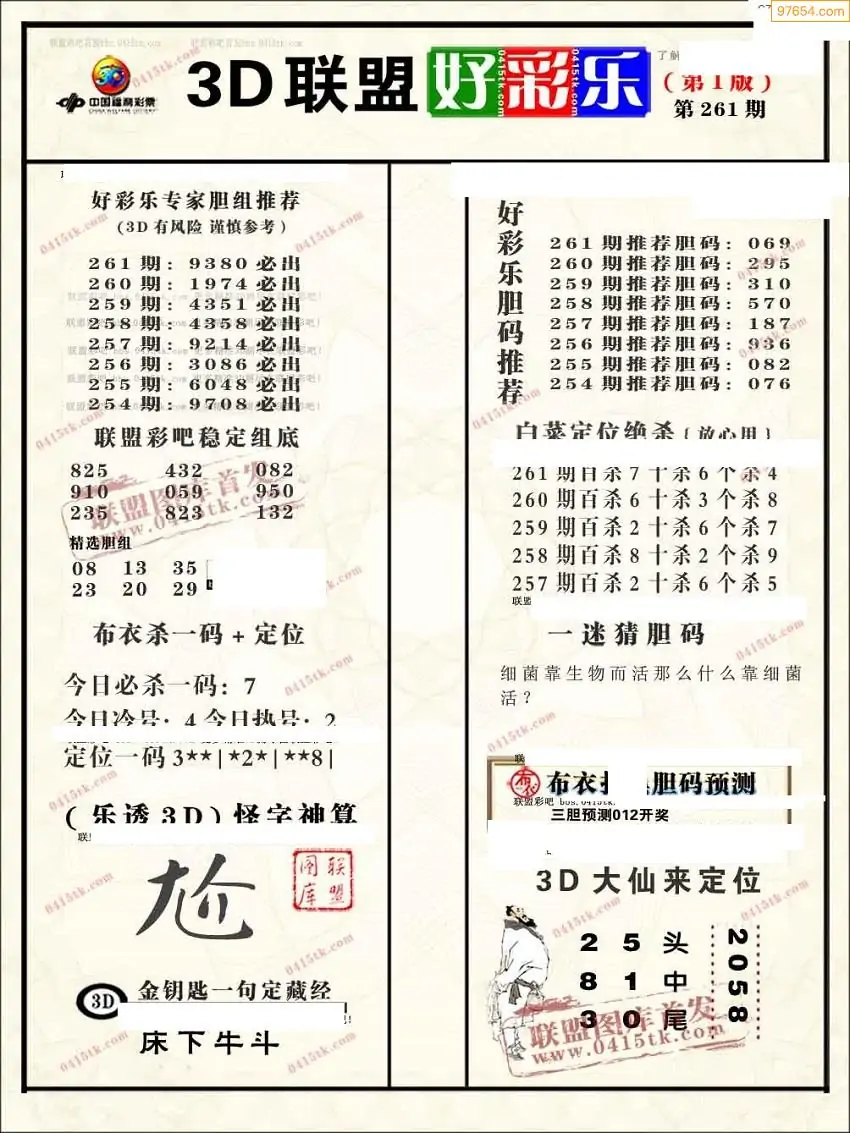 97654.com
中国福利彩票
CHINA WELFARE LOTTERY
3D 联盟 好彩乐
了解
(第1版)
第 261 期
好彩乐专家胆组推荐
(3D 有风险 谨慎参考)
261 期: 9380 必出
260 期: 1974 必出
259 期: 4351 必出
258 期: 4358 必出
257 期: 9214 必出
256 期: 3086 必出
255 期: 6048 必出
254 期: 9708 必出
联盟彩吧稳定组底
825 432 082
910 059 950
235 823 132
精选胆组
08 13 35
23 20 29
布衣杀一码 + 定位
今日必杀一码: 7
今日冷号: 4 今日热号: 2
定位一码 3**|*2*|**8|
(乐透 3D) 怪字神算
尬
联盟图库
3D 金钥匙一句定藏经
床下牛斗
好彩乐胆码推荐
261 期推荐胆码: 069
260 期推荐胆码: 295
259 期推荐胆码: 310
258 期推荐胆码: 570
257 期推荐胆码: 187
256 期推荐胆码: 936
255 期推荐胆码: 082
254 期推荐胆码: 076
白菜定位绝杀 { 放心用 }
261 期百杀 7 十杀 6 个杀 4
260 期百杀 6 十杀 3 个杀 8
259 期百杀 2 十杀 6 个杀 7
258 期百杀 8 十杀 2 个杀 9
257 期百杀 2 十杀 6 个杀 5
联盟
一迷猜胆码
细菌靠生物而活那么什么靠细菌
活?
布衣
胆码预测
联盟彩吧 bbs.0415tk.
三胆预测012开奖
3D 大仙来定位
2 5 头
8 1 中
3 0 尾
2058
联盟图库首发
www.0415tk.com
联盟图库首发
www.0415tk.com
0415tk.com